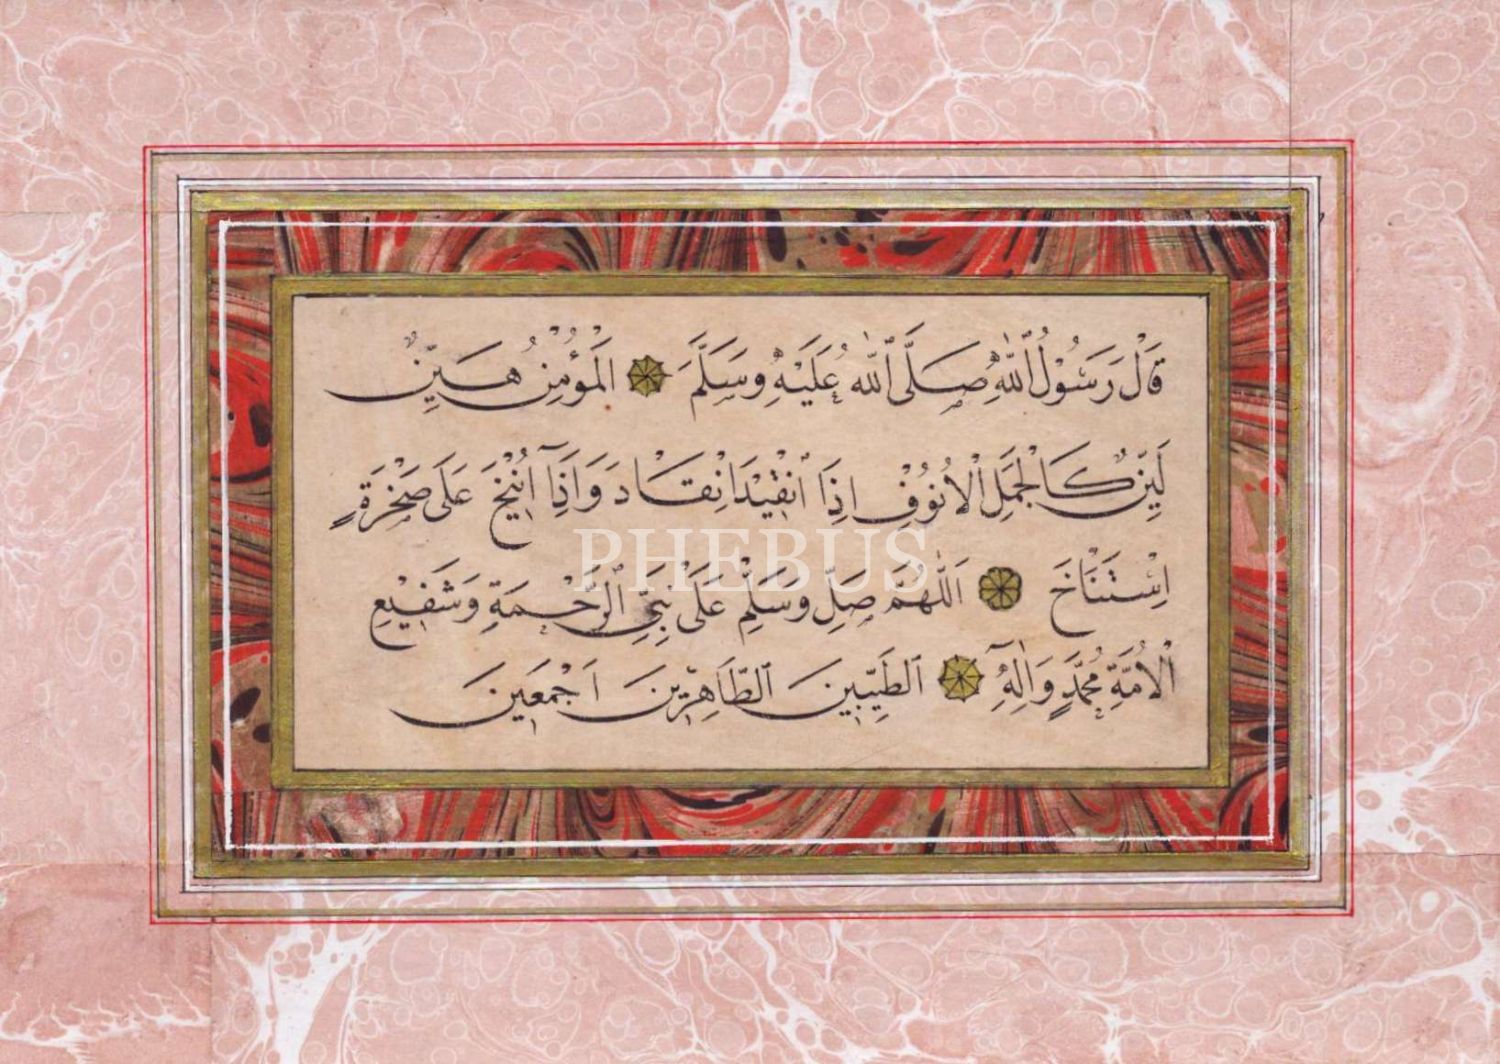 قَالَ رَسُولُ اللّٰهِ صَلَّى اللّٰهُ عَلَيْهِ وَسَلَّمَ الْمُؤْمِنُ هَيِّنٌ
لَيِّنٌ كَالْجَمَلِ الْأَنُوفِ اِذَا انْقِيدَ انْقَادَ وَاِذَا اُنِيخَ عَلَى صَخْرَةٍ
اِسْتَنَاخَ اَللّٰهُمَّ صَلِّ وَسَلِّمْ عَلَى نَبِيِّ الرَّحْمَةِ وَشَفِيْعِ
الْاُمَّةِ مُحَمَّدٍ وَاٰلِهِ الطَّيِّبِينَ الطَّاهِرِينَ اَجْمَعِينَ
PHEBUS